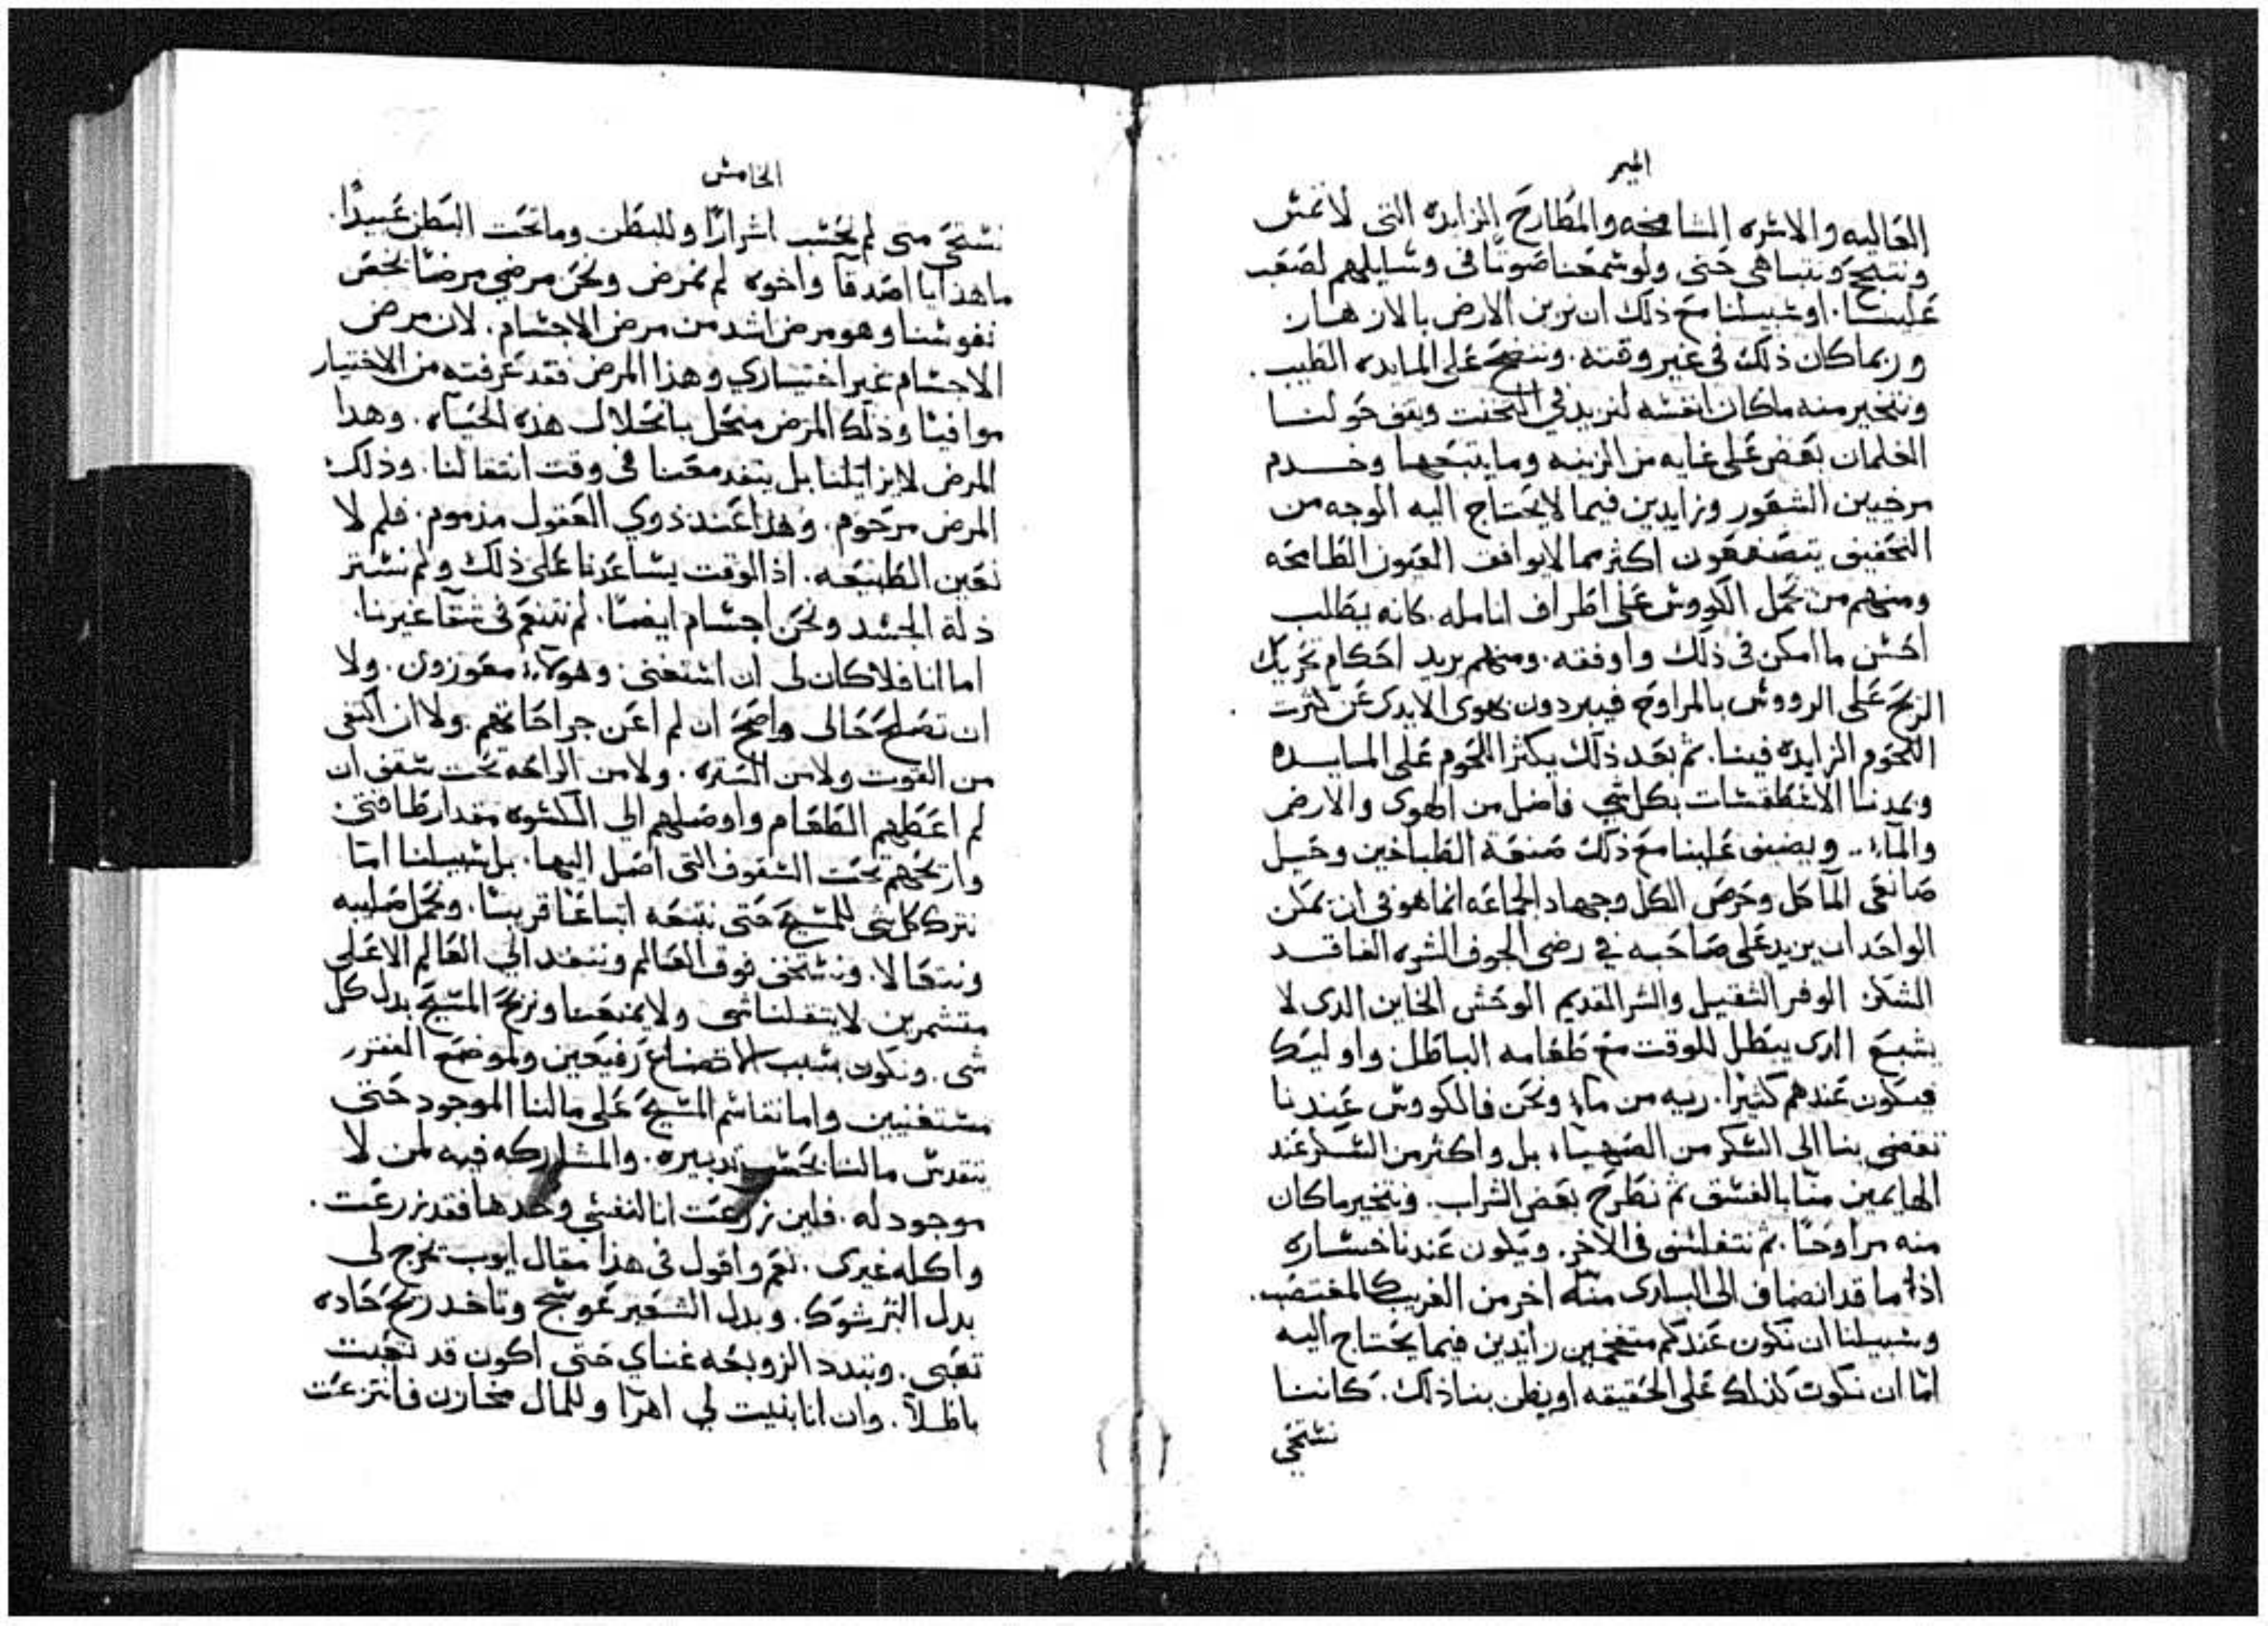 الميمر
العاليه والاسره الشامخه والمطارح الزايده التى لا تمس
ونتبجح ونتباهى حتى ولو سمعنا صوتًا فى وسايلهم لصعب
علينا. او سبيلنا مع ذلك ان نزين الارض بالازهار
وربما كان ذلك فى غير وقته. وننضح على المايده الطيب.
ونتخير منه ماكان انفسه لنزيد في التخنث ويقف حولنا
الغلمان بعض على غايه من الزينه وما يتبعها وخدم
مرخيين الشعور وزايدين فيما لا يحتاج اليه الوجه من
التحفيف يتصنعون اكثر مما لا يوافف العيون الطامحه
ومنهم من يحمل الكووس على اطراف انامله. كانه يطلب
احسن ما امكن فى ذلك واوفقه. ومنهم يريد احكام تحريك
الريح على الرووس بالمراوح فيبردون بهوى الايدى عن كثرت
اللحوم الزايده فينا. ثم بعد ذلك يكثر اللحوم على المايده
ويمدنا الاسطقسات بكل شي فاضل من الهوى والارض
والماء.. ويضيق علينا مع ذلك صنعة الطباخين وحيل
صانعى المآكل وحرص الكل وجهاد الجماعه انما هو فى ان يمكن
الواحد ان يزيد على صاحبه في رضى الجوف الشره الفاقد
الشكر الوقر الثقيل والشر القديم الوحش الخاين الدى لا
يشبع الدى يبطل للوقت مع طعامه الباطل واوليك
فيكون عندهم كثيرًا. ريه من ماء ونحن فالكووس عندنا
تفضى بنا الى السكر من الصهباء بل واكثر من السكر عند
الهايمين منا بالفسق ثم نطرح بعض الشراب. ونتخير ماكان
منه مراوحًا. ثم نتفلسف فى الاخر. ويكون عندنا خساره
اذا ما قد انضاف الى البادى منه اخر من الغريب كالمغتصب.
وسبيلنا ان نكون عندكم متفخمين زايدين فيما يحتاج اليه
امّا ان نكون كذلك على الحقيقه او يظن بنا ذلك. كاننا
نستحى
الخامس
نستحى متى لم نحسب اشرارًا وللبطن وما تحت البطن عبيدًا.
ما هذا يا اصدقآ واخوه لم نمرض ونحن مرضي مرضًا يخص
نفوسنا وهو مرض اشد من مرض الاجسام. لان مرض
الاجسام غير اختيارى وهذا المرض فقد عرفته من الاختيار
موافينا وذلك المرض منحل بانحلال هذه الحياه. وهدا
المرض لا يزايلنا بل ينفد معنا فى وقت انتقالنا. وذلك
المرض مرحوم. وهدا عند ذوي العقول مذموم. فلم لا
نعين الطبيعه. اذ الوقت يساعدنا على ذلك ولم نستر
ذلة الجسد ونحن اجسام ايضًا. لم نتنعم فى شقآ غيرنا.
اما انا فلا كان لى ان استغنى وهولاء معوزون. ولا
ان تصلح حالى واصح ان لم اعن جراحاتهم. ولا ان اكتفى
من القوت ولا من السّتره. ولا من الراحه تحت سقف ان
لم اعطهم الطعام واوصلهم الي الكسوه مقدار طاقتى
واريحهم تحت السقوف التى اصل اليها. بل سبيلنا امّا
نترك كل شى للمسيح حتى نتبعه اتباعًا قريبًا. ونحمل صليبه
ونتعالا. ونستخف فوق العالم وننفد الي العالم الاعلى
متشمرين لا يتقلنا شى ولا يمنعنا ونربح المسيح بدل كل
شى. ونكون بسبب الاتضاع رفيعين ولموضع الفقر
مستغنيين واما نقاسم المسيح على مالنا الموجود حتى
نتقدس مالنا بحسب تدبيره. والمشاركه فيه لمن لا
موجود له. فلين زرعت انا لنفسي وحدها فقد زرعت.
واكله غيرى. نعم واقول فى هذا مقال ايوب تخرج لى
بدل البر شوك. وبدل الشعير عوسج وتاخد ريح حاده
تعبى. وتبدد الزوبعه غناي حتى اكون قد تعبت
باطلاً. وان انا بنيت لي اهرآ وللمال مخازن فانتزعت